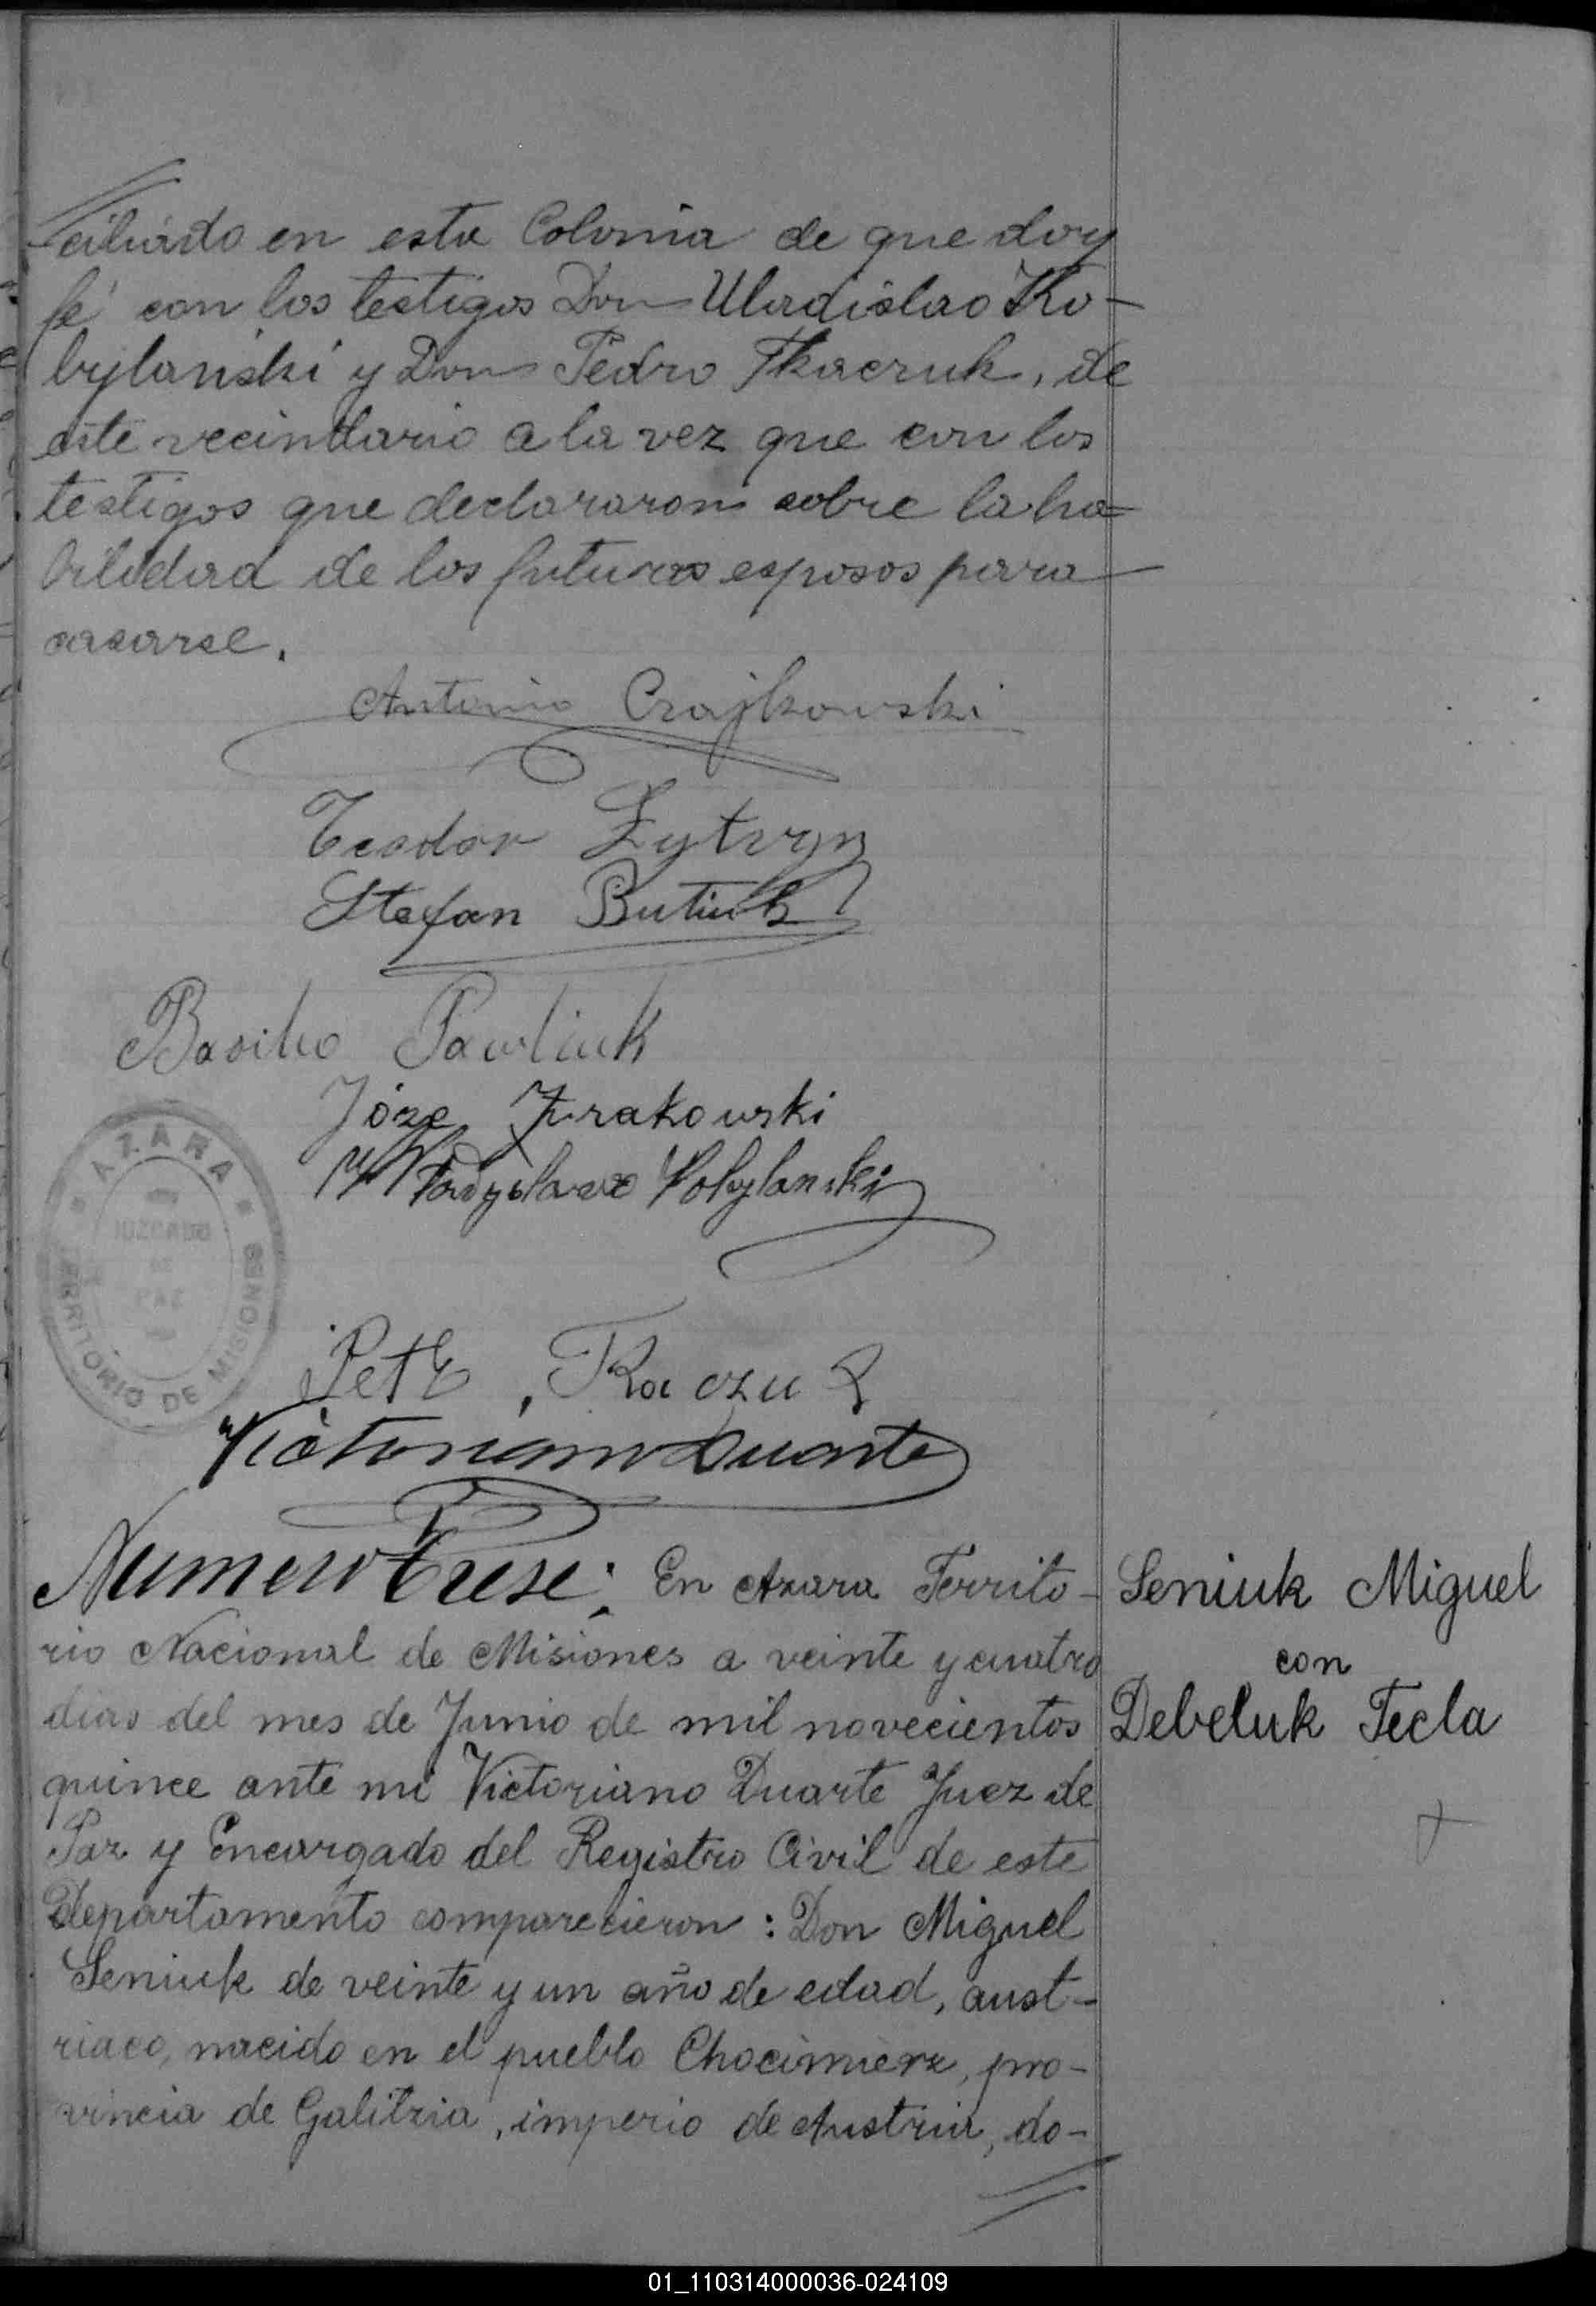 ciliado en esta Colonia de que doy
fé con los testigos Don Uladislao Ko-
bylański y Don Pedro Tkaczuk, de
este vecindario a la vez que con los
testigos que declararon sobre la ha=
bilidad de los futuros esposos para
casarse.
Antonio Czajkowski
Teodor Łytvyn
Stefan Butiuk
Basilio Pawliuk
Józe Jurakowski
Władysławe Kobylanski
AZARA
JUZGADO
DE
PAZ
TERRITORIO DE MISIONES
Petr Tkaczuk
Victoriano Duarte
Numero Trese: En Azara Territo-
rio Nacional de Misiones a veinte y cuatro
dias del mes de Junio de mil novecientos
quince ante mi Victoriano Duarte Juez de
Paz y Encargado del Registro Civil de este
Departamento comparecieron: Don Miguel
Seniuk de veinte y un año de edad, aust-
riaco, nacido en el pueblo Chocimierz, pro-
vincia de Galitzia, imperio de Austria, do-
Seniuk Miguel
con
Debeluk Tecla
01_110314000036-024109